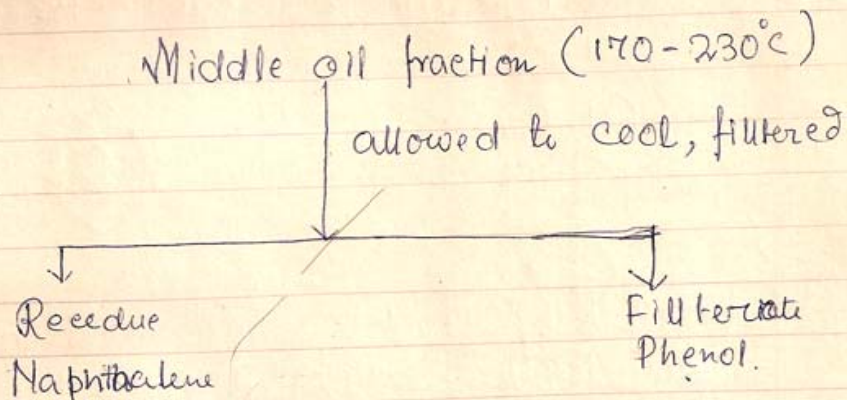 Middle oil fraction (170-230°c)
allowed to cool, filltered
Recedue
Naphthalene
Fillterate
Phenol.